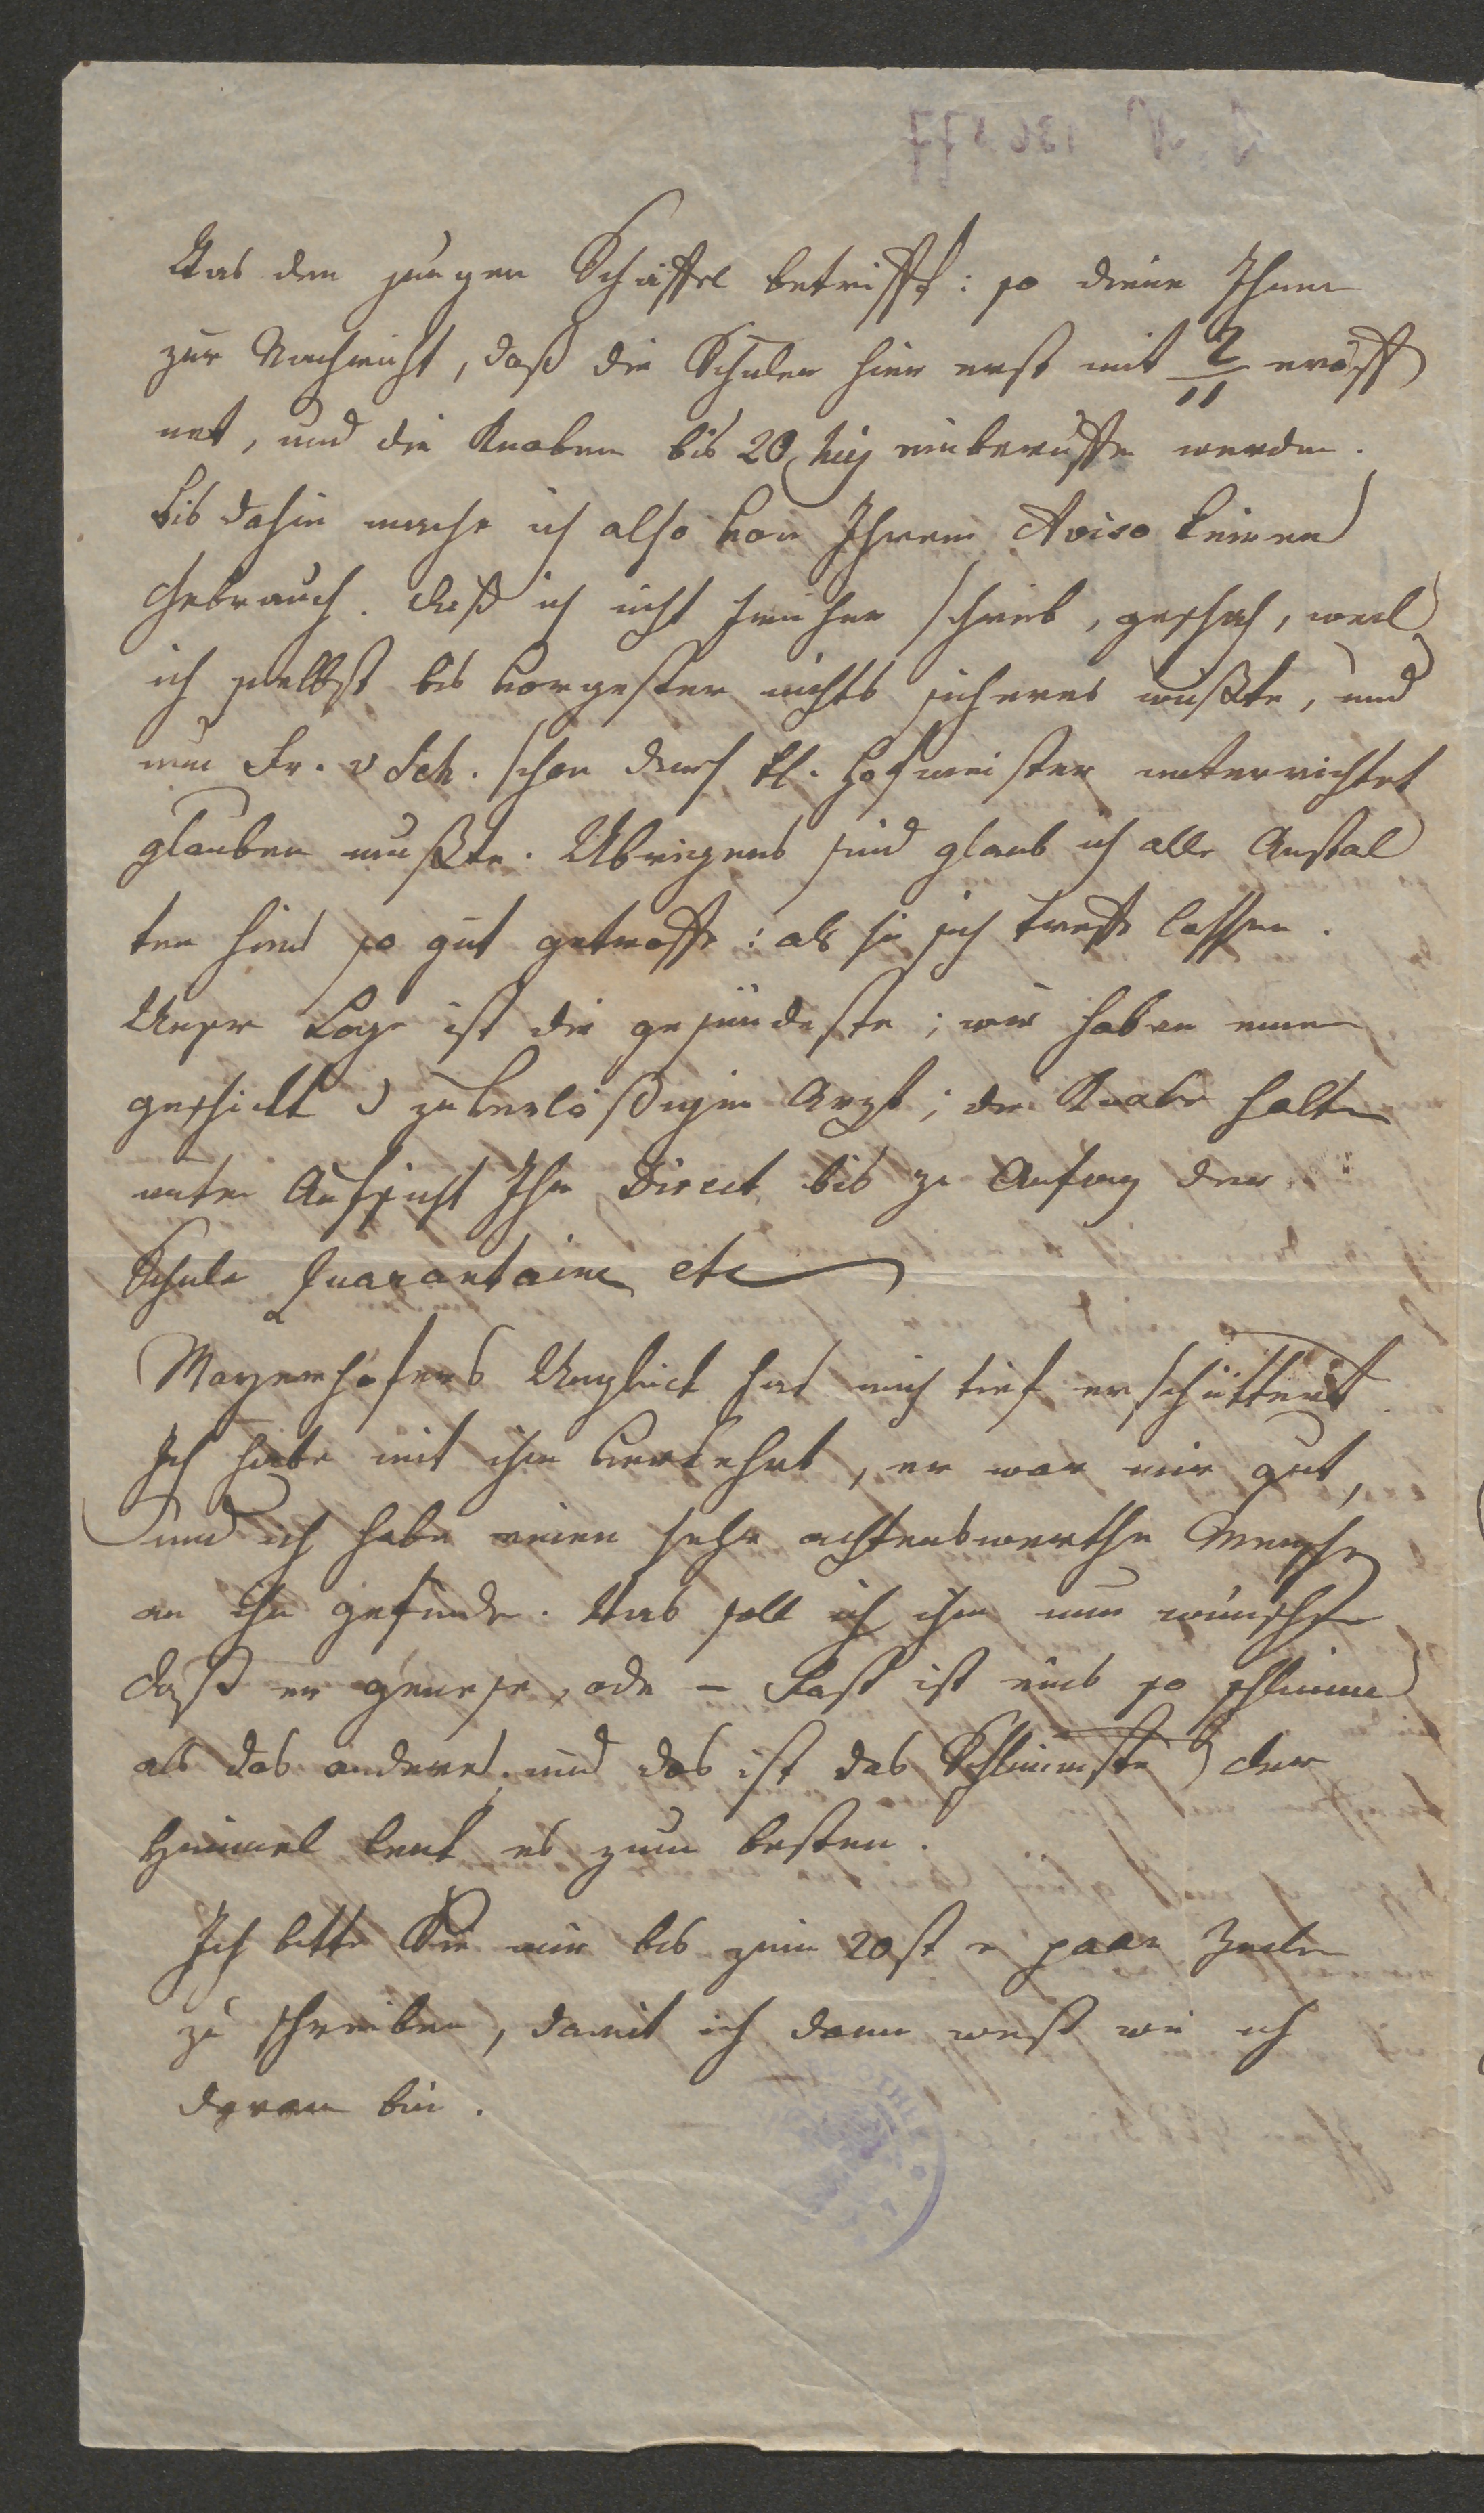 Was den jungen Schäffel betrifft: so diene Ihnen
zur Nachricht, daß die Schulen hier erst mit 2/11 eröff
net, und die Knaben bis 20 huj einberuffen werden.
bis dahin mache ich also von Ihrem Aviso keinen
Gebrauch. Daß ich nicht früher schrieb, geschah, weil
ich selbst bis vorgestern nichts sicheres wußte, und
nun Fr. v Sch. schon durch H. Hofmeister unterrichtet
glauben mußte. Übrigens sind glaub ich alle Anstal
ten hier so gut getroffen: als sie sich treffen lassen.
Unsre Lage ist die gesündeste; wir haben einen
geschickt u zuverläßigen Arzt; die Knaben halten
unter Aufsicht Ihr Direct bis zu Anfang der
Schule Quarantaine etc
Mayerhofers Unglück hat mich tief erschüttert.
Ich habe mit ihm verkehrt, er war mir gut,
und ich habe einen sehr achtenswerthen Menschen
an ihm gefunden. Was soll ich ihm nun wünschen
daß er genese, oder – Fast ist eins so schlimm
als das andere, und das ist das Schlimmste, der
Himmel lenk es zum besten.
Ich bitte Sie mir bis zum 20st e paar Zeilen
zu schreiben, damit ich dann weiß wie ich
daran bin.